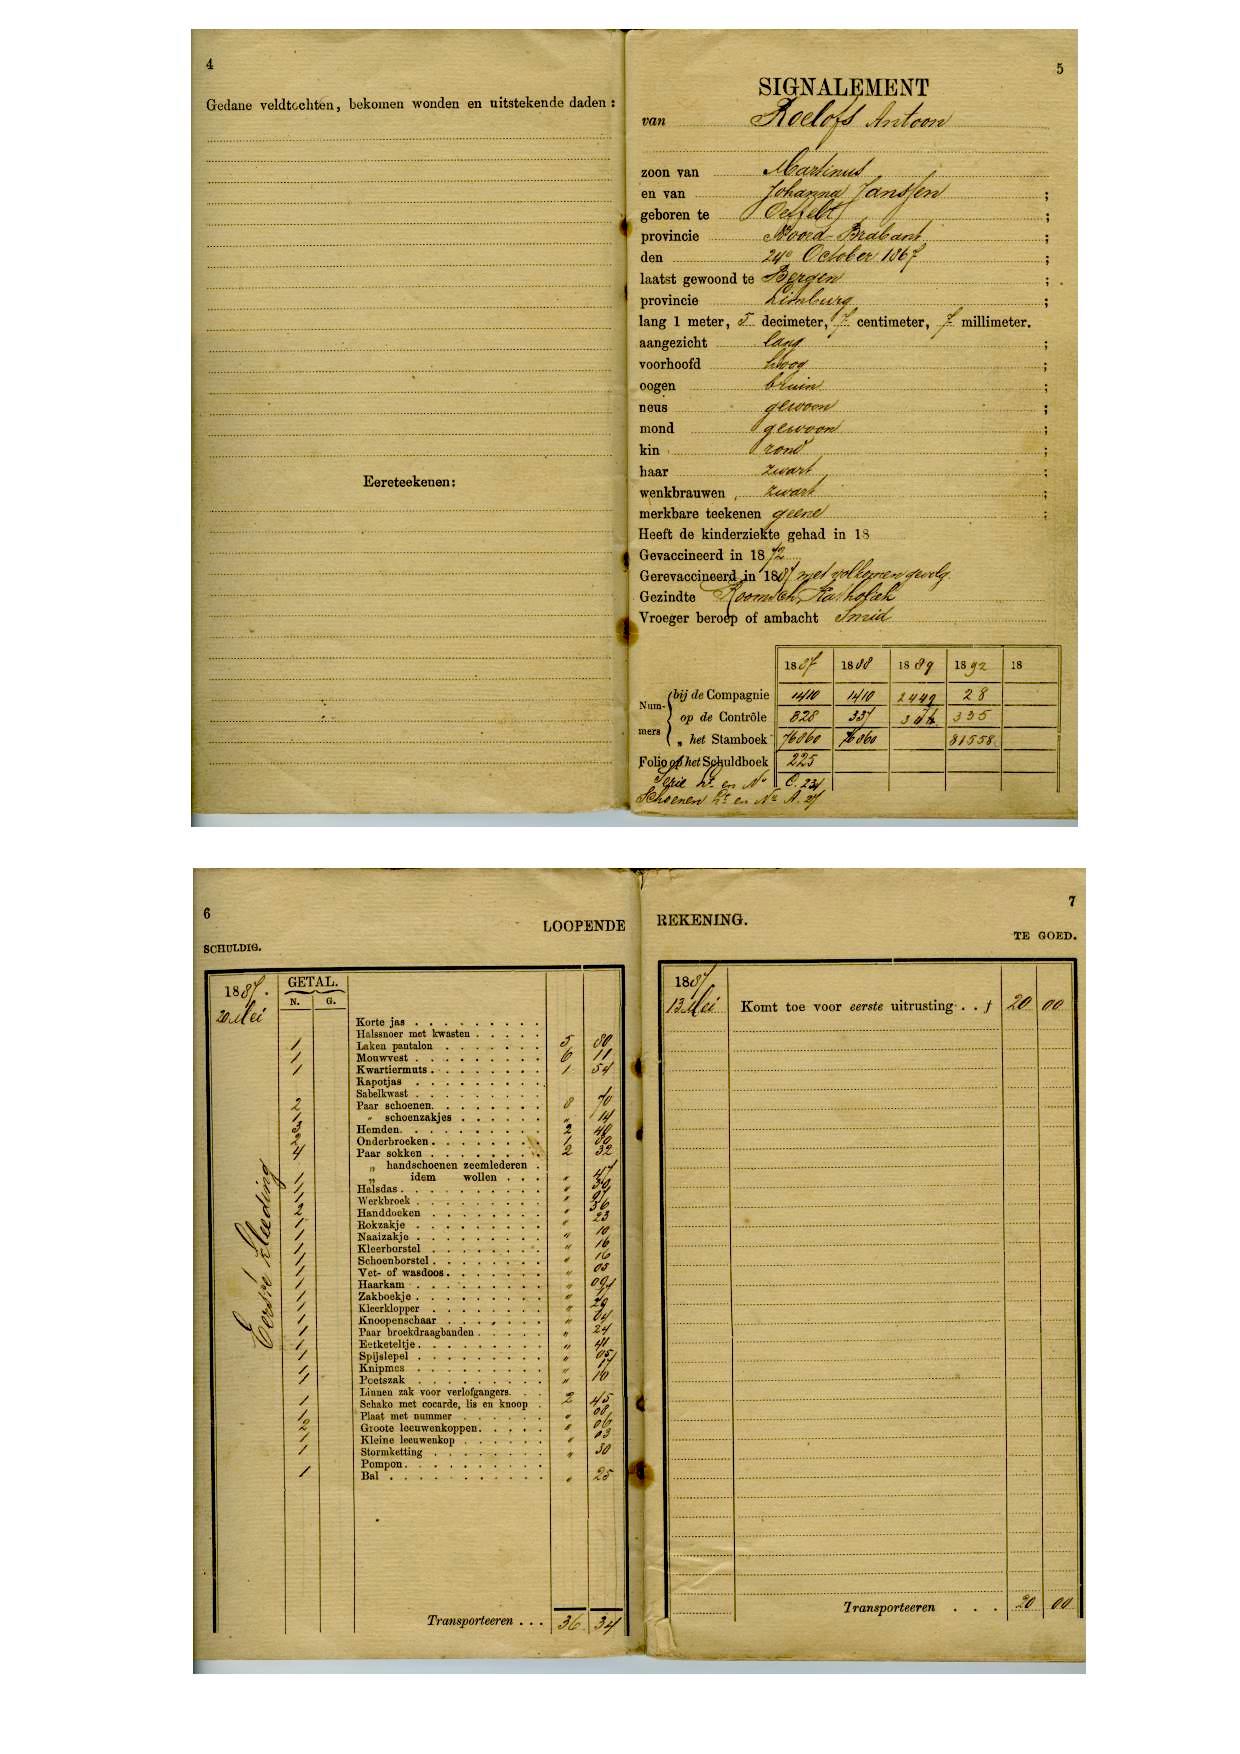 4
Gedane veldtochten, bekomen wonden en uitstekende daden :
Eereteekenen:
5
SIGNALEMENT
van Roelofs Antoon
zoon van Martinus
en van Johanna Janssen ;
geboren te Oeffelt ;
provincie Noord-Brabant ;
den 24e October 1867 ;
laatst gewoond te Bergen ;
provincie Limburg ;
lang 1 meter, 5 decimeter, 7 centimeter, 7 millimeter.
aangezicht lang ;
voorhoofd hoog ;
oogen bruin ;
neus gewoon ;
mond gewoon ;
kin rond ;
haar zwart ;
wenkbrauwen zwart ;
merkbare teekenen geene ;
Heeft de kinderziekte gehad in 18
Gevaccineerd in 1872
Gerevaccineerd in 1887 met volkomen gevolg.
Gezindte Roomsch Katholiek
Vroeger beroep of ambacht Smid
1887 1888 1889 1892 18
Nummers
bij de Compagnie 1410 1410 2449 28
op de Contrôle 828 337 335
„ het Stamboek 76060 76060 81558
Folio op het Schuldboek 225
Serie Lt. en No C. 234
Schoenen Lt. en No A. 27
6
LOOPENDE
SCHULDIG.
1887. GETAL.
N. G.
20 Mei
Eerste kleeding
Korte jas
Halssnoer met kwasten
1 Laken pantalon 5 80
1 Mouwvest 6 11
1 Kwartiermuts 1 54
Kapotjas
Sabelkwast
2 Paar schoenen 8 70
„ schoenzakjes „ 14
3 Hemden 2 40
Onderbroeken 1 80
4 Paar sokken 2 32
„ handschoenen zeemlederen
„ idem wollen „ 47
Halsdas „
Werkbroek „
2 Handdoeken „ 36
1 Rokzakje „ 23
1 Naaizakje „ 10
1 Kleerborstel „ 16
1 Schoenborstel „ 16
1 Vet- of wasdoos „ 05
1 Haarkam „
1 Zakboekje „
1 Kleerklopper „ 29
1 Knoopenschaar „ 04
1 Paar broekdraagbanden „ 24
1 Eetketeltje „
1 Spijslepel „ 05
1 Knipmes „ 17
1 Poetszak „ 16
Linnen zak voor verlofgangers.
1 Schako met cocarde, lis en knoop 2 45
1 Plaat met nummer „ 08
2 Groote leeuwenkoppen „ 06
1 Kleine leeuwenkop „ 03
1 Stormketting „ 30
Pompon
1 Bal „ 25
Transporteeren . . . 36 34
7
REKENING.
TE GOED.
1887
13 Mei Komt toe voor eerste uitrusting . . f 20 00
Transporteeren . . . 20 00